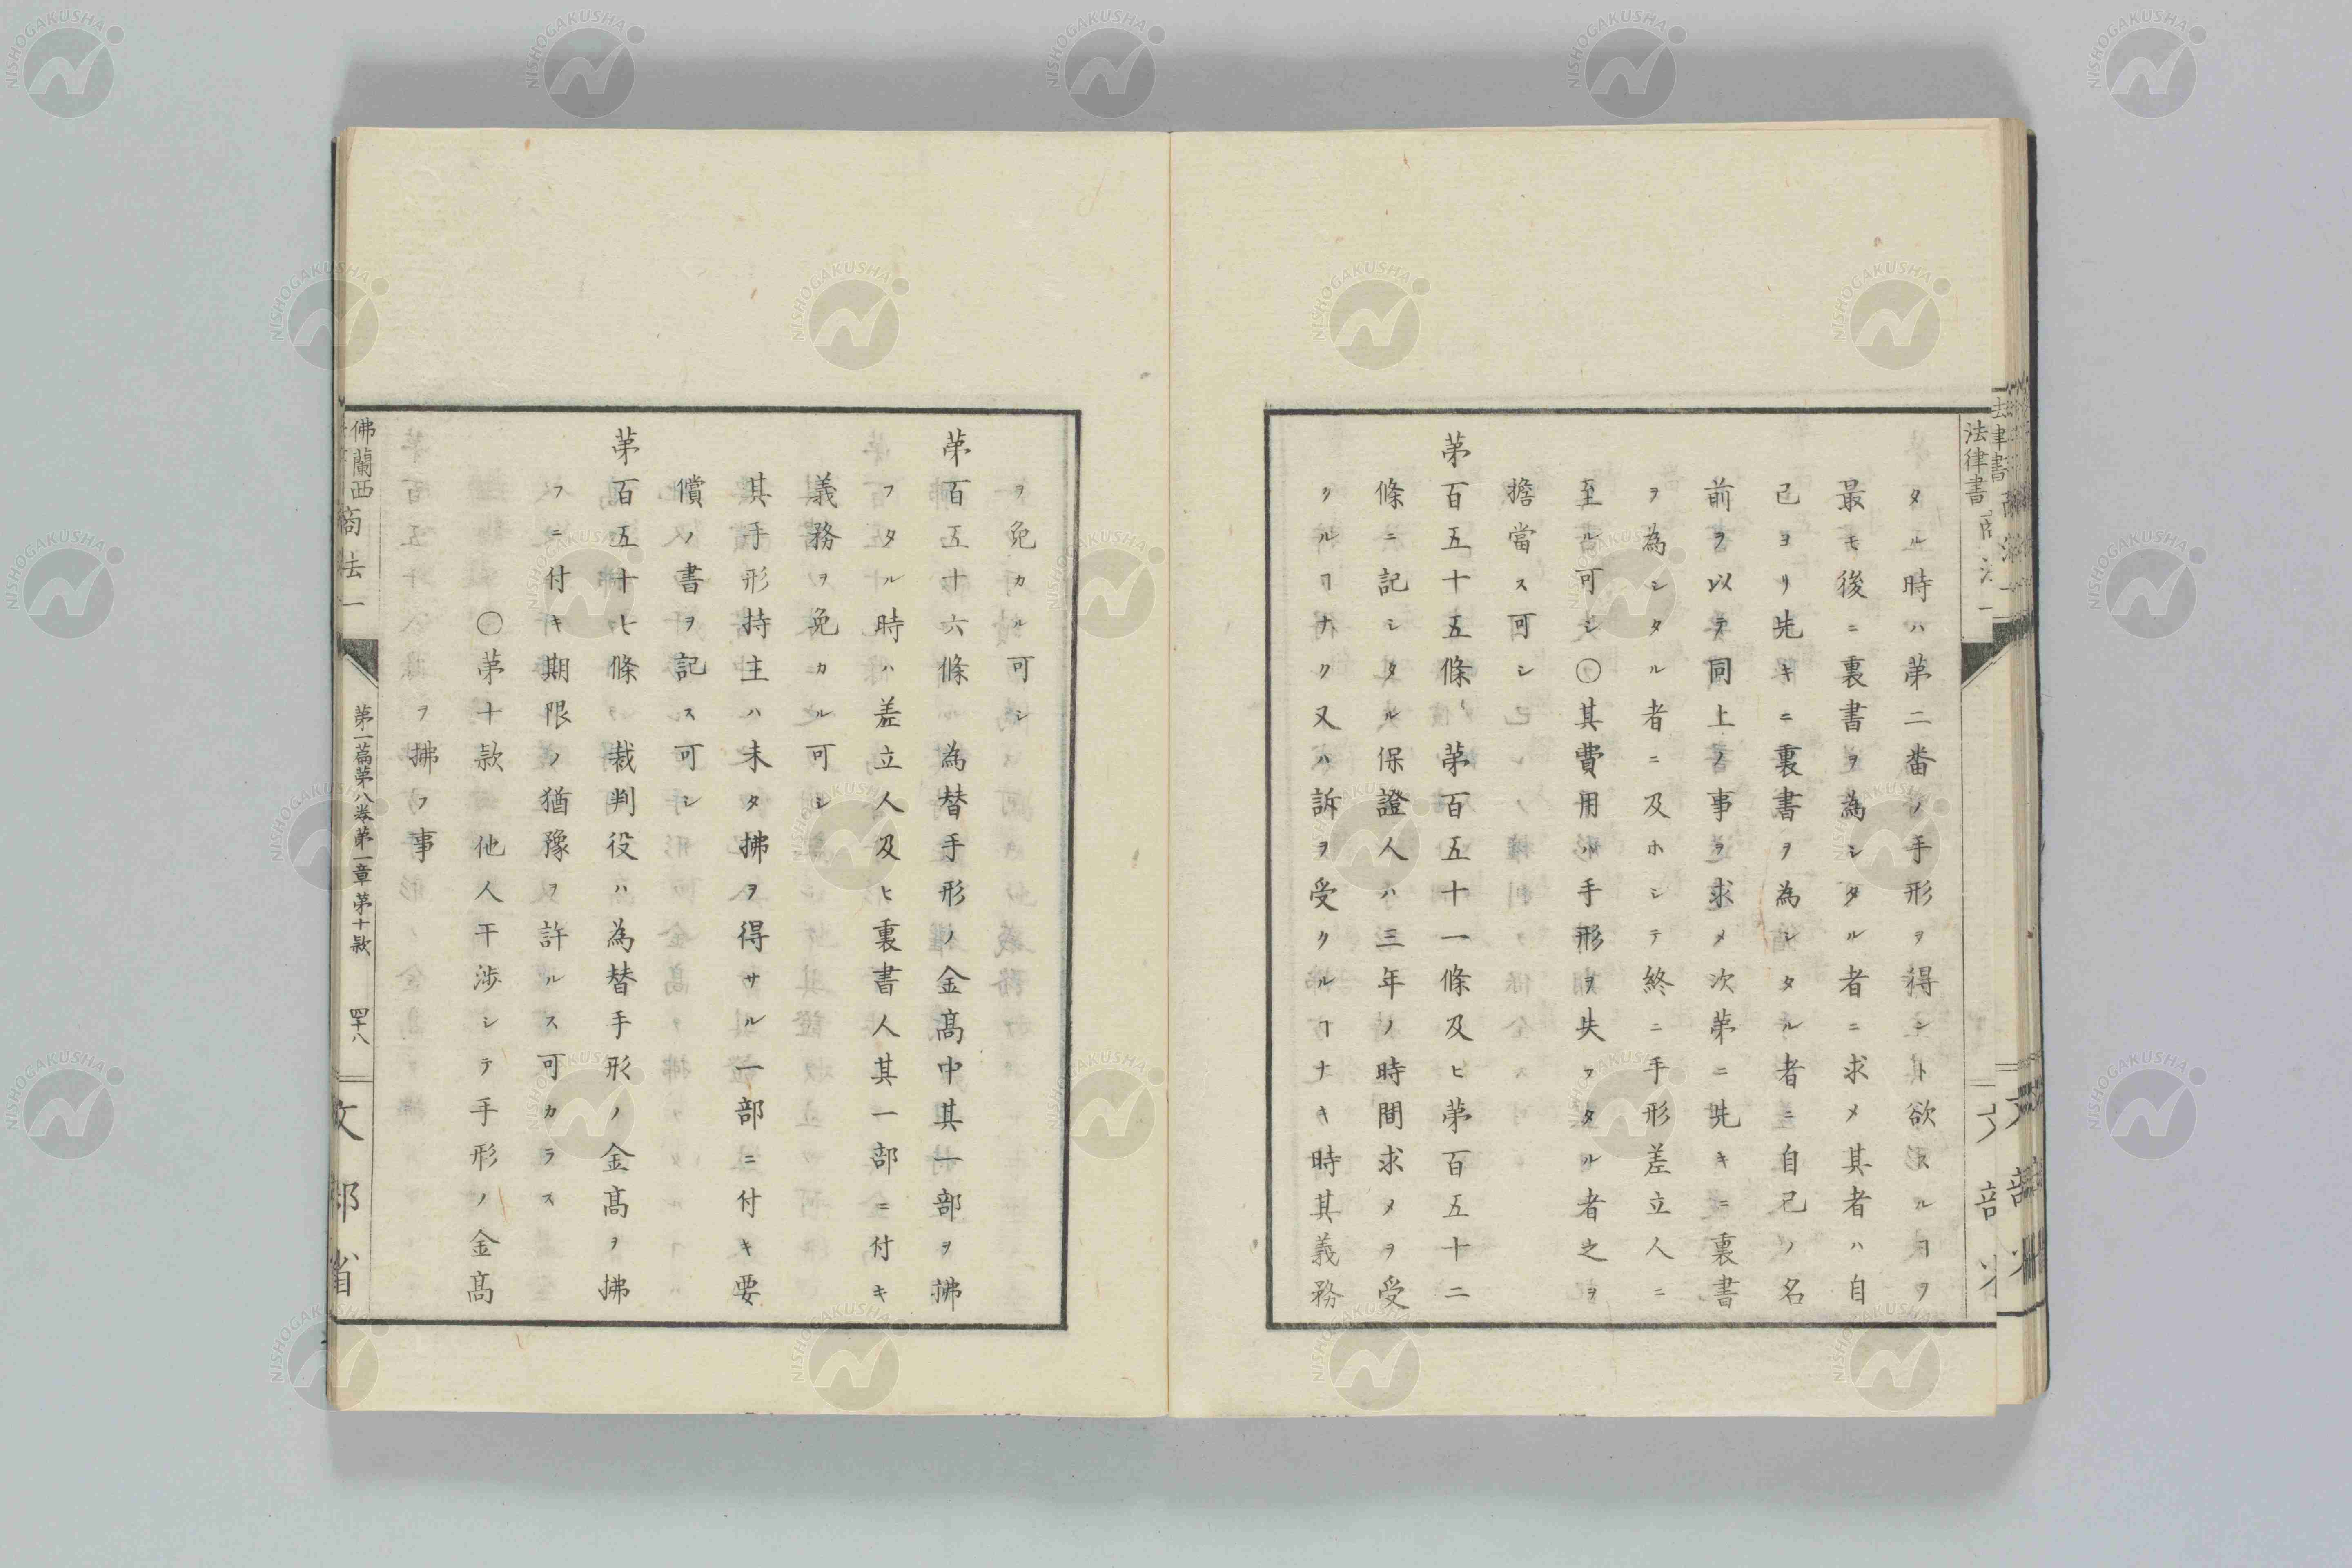 タル時ハ第二番ノ手形ヲ得ント欲スルヿヲ
最モ後ニ裏書ヲ為シタル者ニ求メ其者ハ自
己ヨリ先キニ裏書ヲ為シタル者ニ自己ノ名
前ヲ以テ同上ノ事ヲ求メ次第ニ先キニ裏書
ヲ為シタル者ニ及ホシテ終ニ手形差立人ニ
至ル可シ〇其費用ハ手形ヲ失フタル者之ヲ
擔當ス可シ
第百五十五條 第百五十一條及ヒ第百五十二
條ニ記シタル保證人ハ三年ノ時間求メヲ受
クルヿナク又ハ訴ヲ受クルヿナキ時其義務
ヲ免カル可シ
第百五十六條 為替手形ノ金髙中其一部ヲ拂
フタル時ハ差立人及ヒ裏書人其一部ニ付キ
義務ヲ免カル可シ
其手形持主ハ未タ拂ヲ得サル一部ニ付キ要
償ノ書ヲ記ス可シ
第百五十七條 裁判役ハ為替手形ノ金髙ヲ拂
フニ付キ期限ノ猶豫ヲ許ルス可カラス
〇第十款 他人干渉シテ手形ノ金髙
ヲ拂フ事
佛蘭西商法一 第一篇第八巻第一章第十款 四十八 文部省
法律書
NISHOGAKUSHA